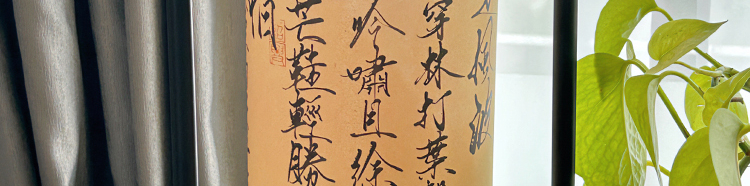 風波
穿林打葉
吟嘯且徐
芒鞋輕勝